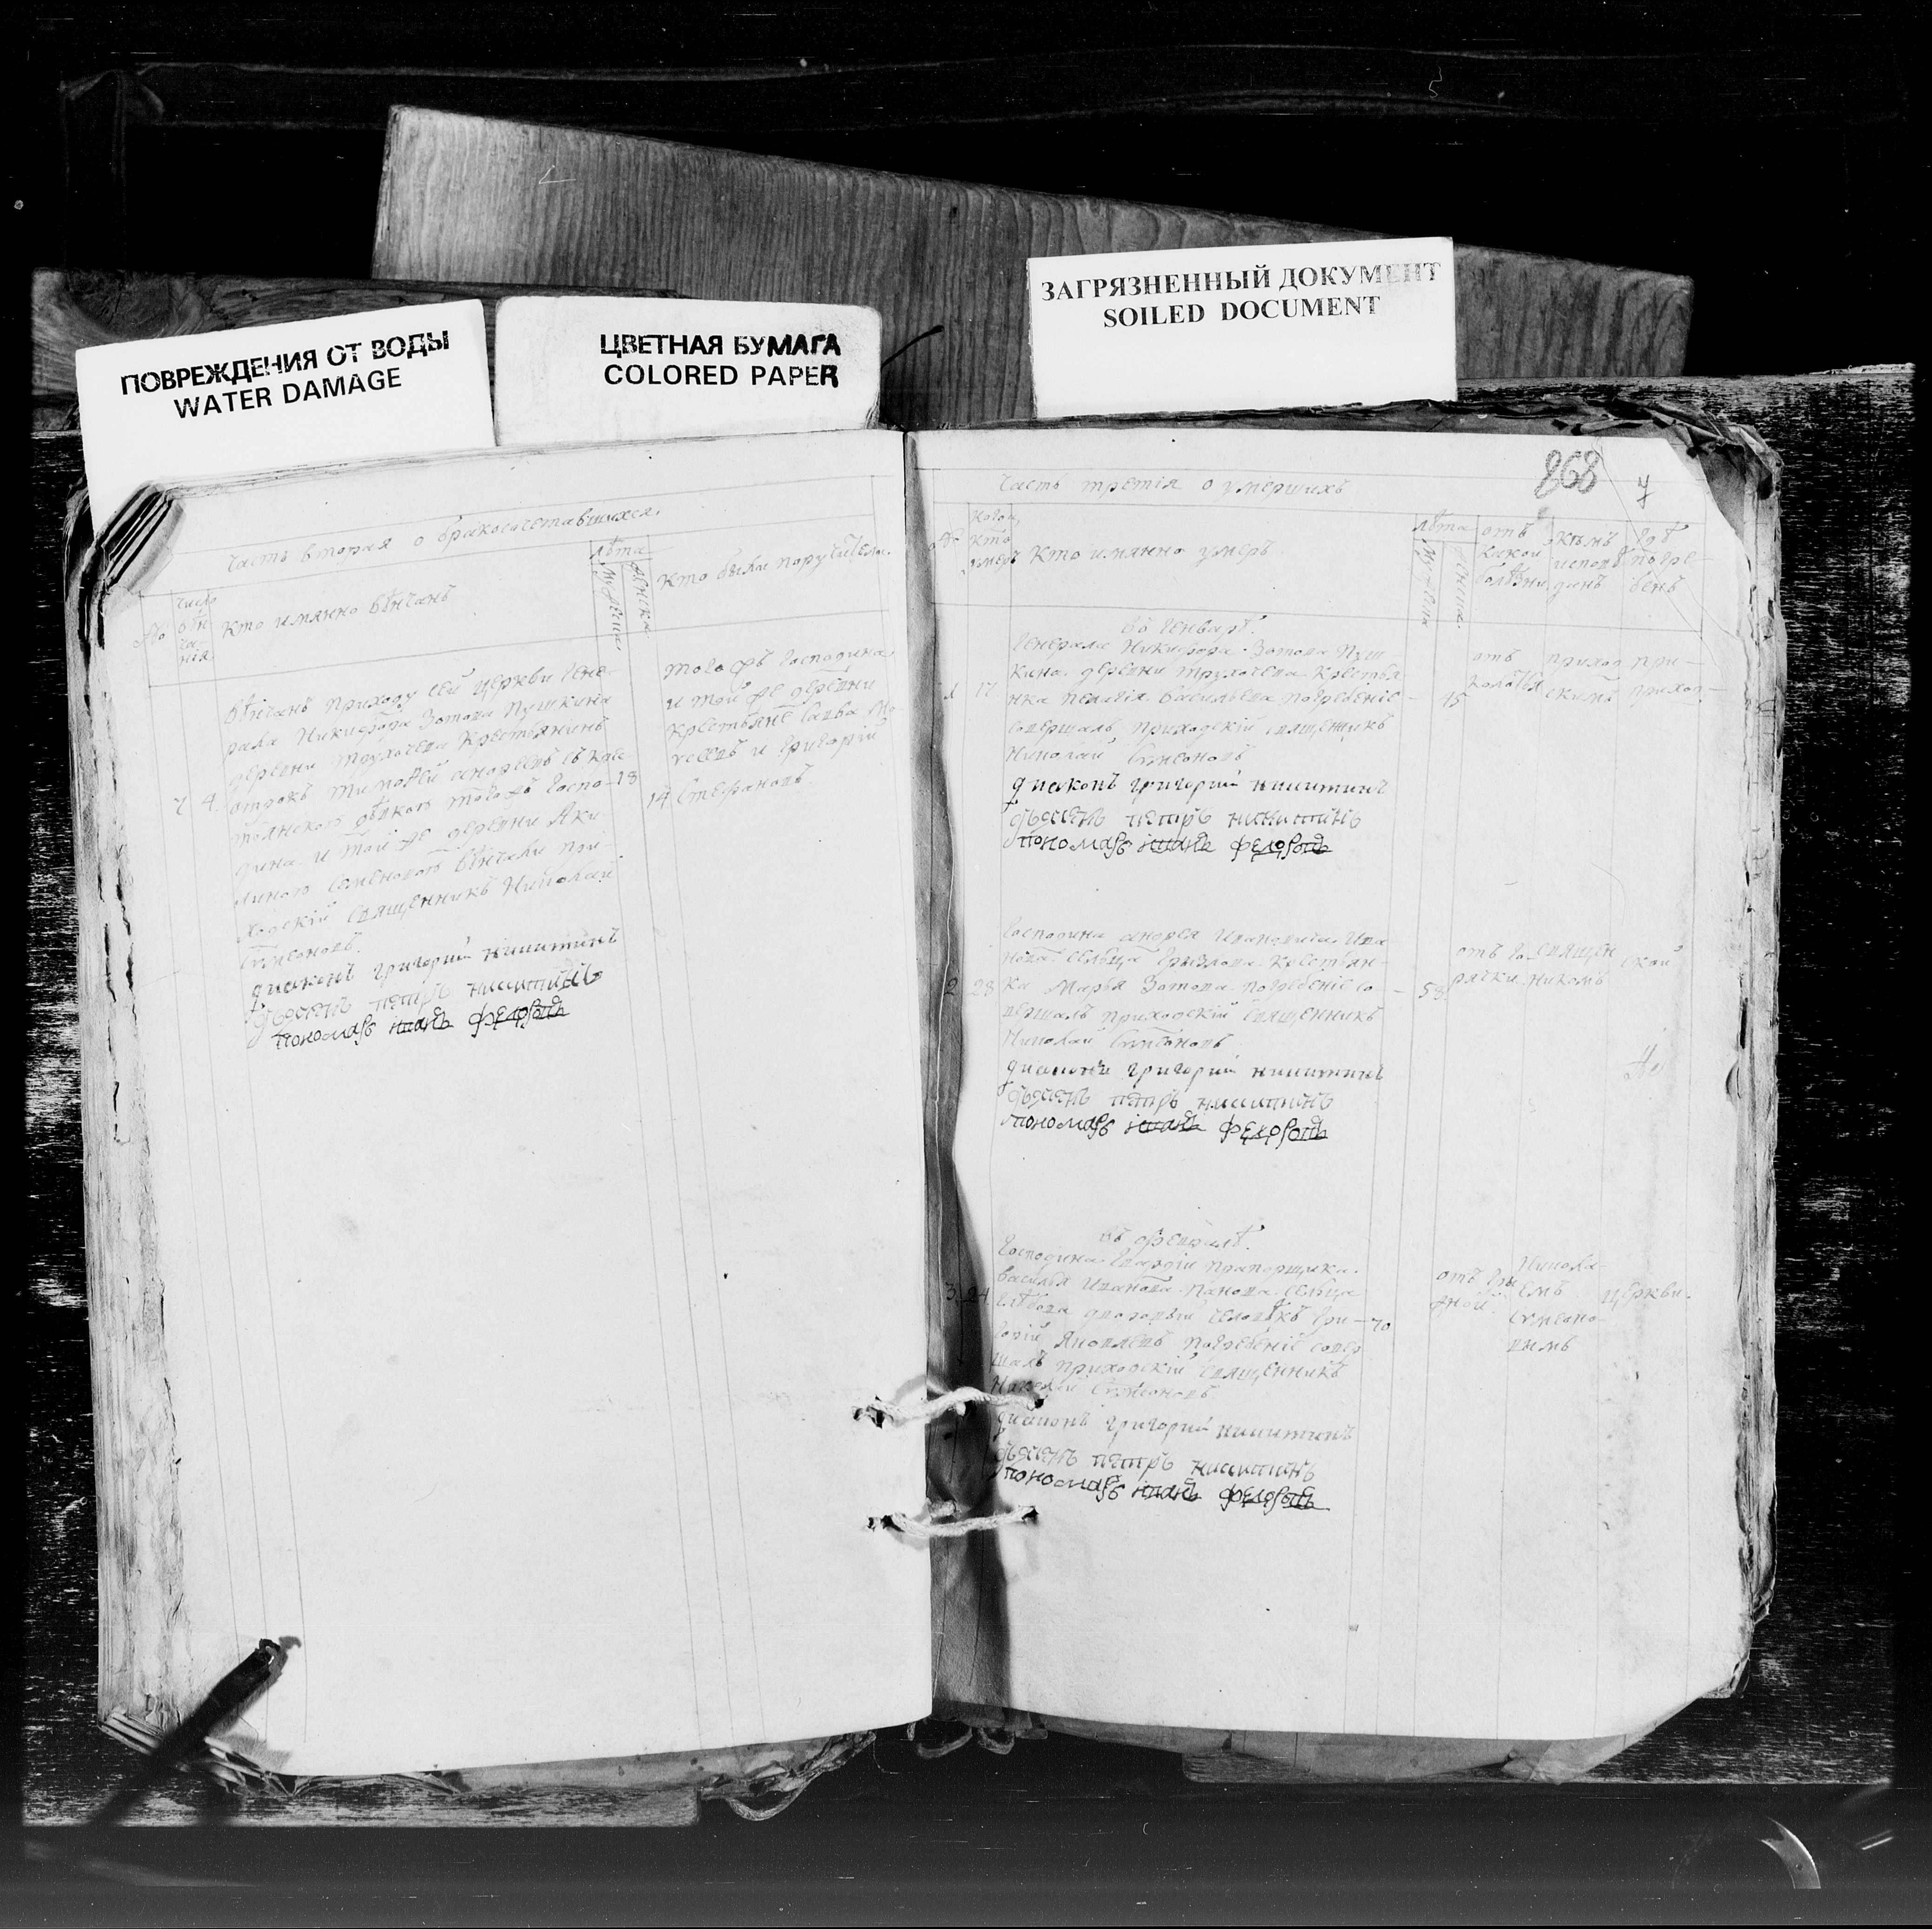 ПОВРЕЖДЕНИЯ ОТ ВОДЫ
WATER DAMAGE
ЦВЕТНАЯ БУМАГА
COLORED PAPER
ЗАГРЯЗНЕННЫЙ ДОКУМЕНТ
SOILED DOCUMENT
часть вторая о бракосочетавшихся.
№
число
вѣн
ча
нія
Кто имянно вѣнчанъ
лѣта
мужеска
женска
Кто были поручители
вѣнчанъ приходу сей церкви Гене-
рала Никифора Зотова Пушкина
деревни Трухачева Крестьянинъ
отрокъ Тимофей Андреевъ съ Крес-
7 4. тьянскою дѣвкою тогожъ Госпо- 18 14
дина и той же деревни Аки
линою Семеновою вѣнчалъ При-
ходскій священникъ Николай
Симеоновъ.
диаконъ григорий никитинъ
дьячекъ петръ никитинъ
пономарь иванъ федоровъ
того жъ Господина
и той же деревни
Крестьяне Савва Мо
исеевъ и Григорій
Стефановъ.
868 7
часть третія о умершихъ
№
когда
кто
умеръ
Кто имянно умеръ
лѣта
мужеска
женска
отъ
какой
болѣзни
кѣмъ
исповѣ
данъ
гдѣ
погре-
бенъ
въ Генварѣ.
Генерала Никифора Зотова Пуш-
кина деревни Трухачева Крестья
1 17. нка Пелагія Васильева погребеніе - 75
совершалъ приходскій священникъ
Николай Симеоновъ
диаконъ григорий никитинъ
дьячекъ петръ никитинъ
пономарь иванъ федоровъ
отъ
приход
скимъ
при-
приход-
Господина Андрея Ивановича Ива
нова сельца Крестьян-
2 28 ка Марья Зотова погребеніе со - 58
вершалъ приходскій священникъ
Николай Симеоновъ
диаконъ григорий никитинъ
дьячекъ петръ никитинъ
пономарь иванъ федоровъ
отъ го
рячки
священ
никомъ
ской
въ Февралѣ.
Господина Гвардіи прапорщика
Василья Иванова Панова сельца
3 24 Глѣбова дворовый человѣкъ Гри- 70
горій Яковлевъ погребеніе совер
шалъ приходскій священникъ
Николай Симеоновъ
диаконъ григорий никитинъ
дьячекъ петръ никитинъ
пономарь иванъ федоровъ
отъ гры
жной
Никола
емъ
Симеоно
вымъ
церкви.